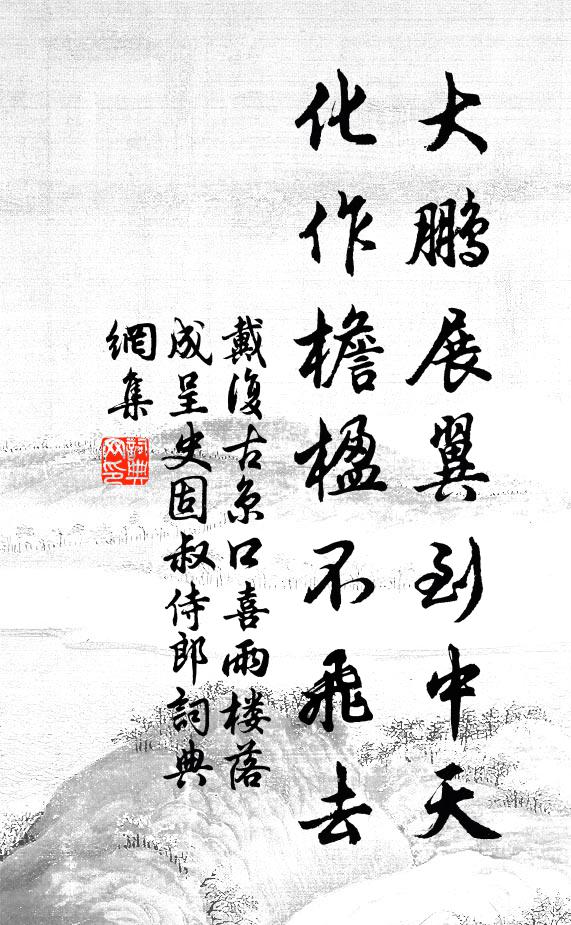 大鹏展翼到中天
化作檐楹不飞去
戴復古京口喜雨楼落
成呈史固叔侍郎詞典
網集
詞典
网印